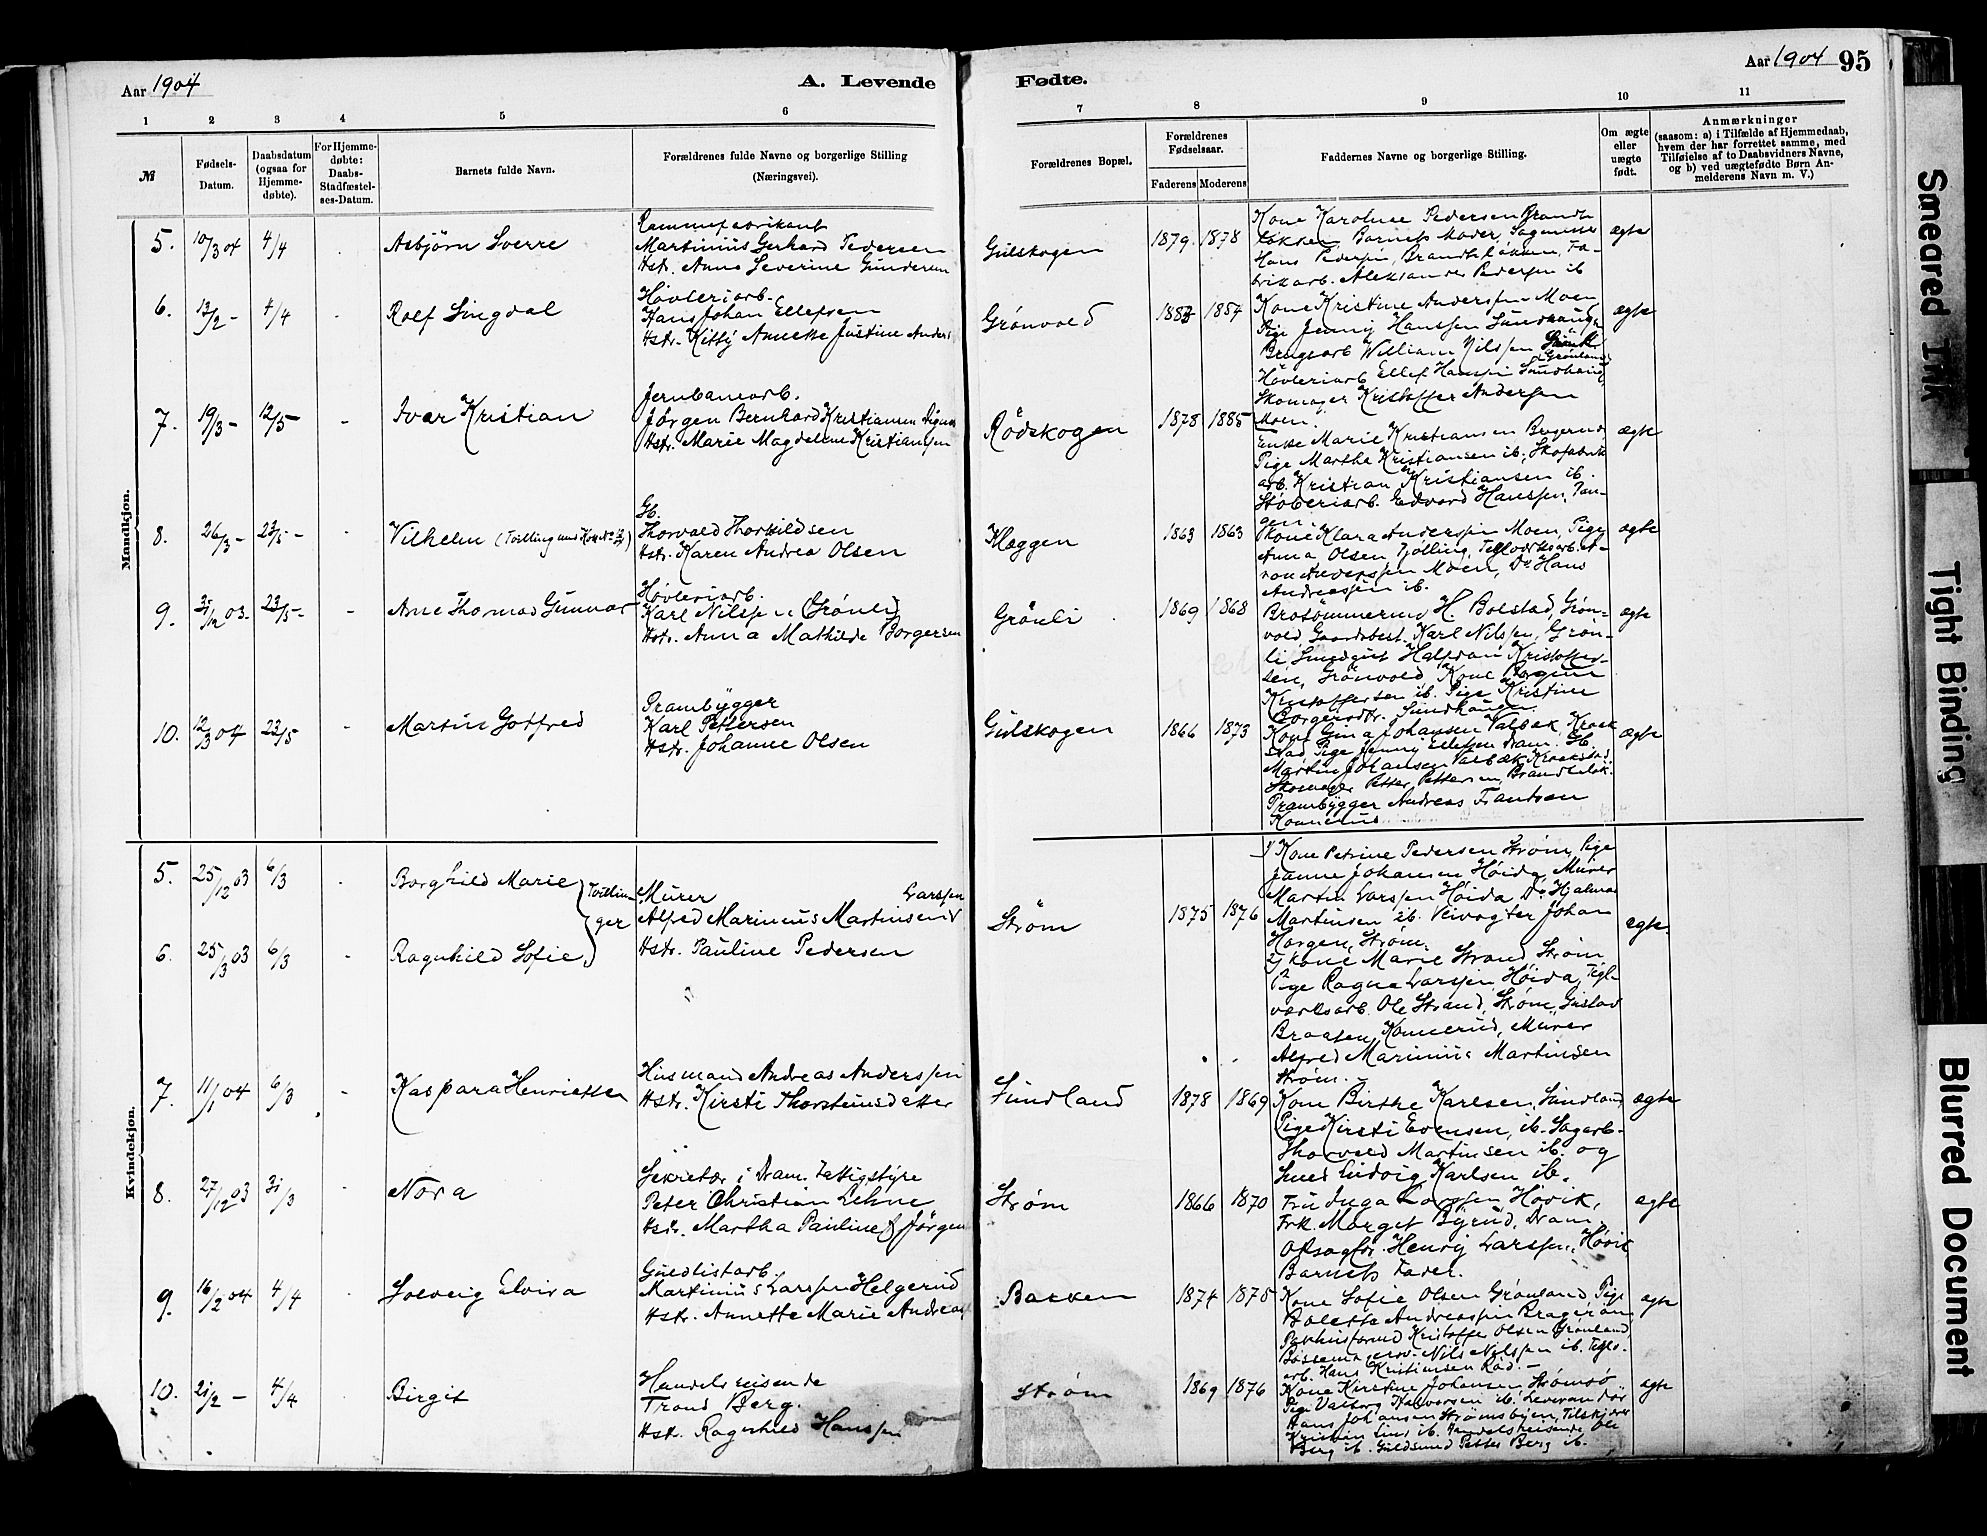 Aar 1904
A. Levende
Fødte.
Aar 1904
95
1 2 3 4 5 6 7 8 9 10 11
№
Fødsels-Datum.
Daabsdatum (ogsaa for Hjemme-døbte).
For Hjemme-døbte: Daabs-Stadfæstel-ses-Datum.
Barnets fulde Navn.
Forældrenes fulde Navne og borgerlige Stilling
(Næringsvei).
Forældrenes Bopæl.
Forældrenes Fødselsaar.
Faderens Moderens
Faddernes Navne og borgerlige Stilling.
Om ægte eller uægte født.
Anmærkninger
(saasom: a) i Tilfælde af Hjemmedaab,
hvem der har forrettet samme, med
Tilføielse af to Daabsvidners Navne,
og b) ved uægtefødte Børn An-
melderens Navn m. V.)
Mandkjøn.
5. 10/3 04 4/4 Asbjørn Sverre
Rammefabrikant
Martinius Gerhard Pedersen
Hstr. Anna Severine Gundersen
Gulskogen 1879 1878
Kone Karoline Pedersen Brandt-
løkken Barnets Moder
Hans Pedersen, Brandtløkken, Fa-
brikarb. Aleksander Pedersen ib
ægte
6. 13/2 - 4/4 Rolf Singdal
Høvleriarb.
Hans Johan Ellefsen
Hstr. Kitty Annette Justine Anders
Grønvold 1884
Kone Kristine Anderssen Moen
Pige Jenny Hanssen Sundhaug
Brugsarb William Nilssen
Grønland
Høvleriarb Ellef Hanssen Sundhaug
Skomager Kristoffer Andersen
Moen.
ægte
7. 19/3 - 12/5 - Ivar Kristian
Jernbanearb.
Jørgen Bernhard Kristiansen
Hstr. Marie Magdalene Kristiansen
Rødskogen 1878 1885
Enke Marie Kristiansen
Pige Marthe Kristiansen ib, Skofabrik
arb. Kristian Kristiansen ib.
Støberiarb. Edvard Hanssen, Tan-
gen.
ægte
8. 26/3 - 23/5 - Vilhelm (Tvilling med
Gb.
Thorvald Thorkildsen
Hstr. Karen Andrea Olsen
Kleggen 1863 1863
Kone Klara Anderssen Moen, Pige
Anna Olsen Tjølling, Teglværksarb. A-
ron Anderssen Moen, Do Hans
Andreassen ib.
ægte
9. 31/12 03. 23/5 - Arne Thomas Gunnar
Høvleriarb.
Karl Nilssen (Grønli)
Hstr. Anna Mathilde Borgersen
Grønli 1869 1868
H. Bolstad, Grøn-
vold Gaardsbest. Karl Nilssen, Grøn-
li Halfdan Kristoffer-
sen, Grønvold Kone
Kristoffersen ib. Pige Kristine
Borgersdtr. Sundhaugen.
ægte
10. 12/3 04 23/5 - Martin Gotfred
Prambygger
Karl Pettersen
Hstr. Johanne Olsen
Gulskogen 1866 1873
Kone Gina Johansen Valbæk, Krok
stad, Pige Jenny Ellefsen Dram. Gb.
Martin Johansen Valbæk Krokstad,
Skomager Petter Pettersen, Brandtsløk.
Prambygger Andreas Frantsen
Konnerud
ægte
Kvindekjøn.
5. 25/12 03 6/3 Borghild Marie
6. 25/3 03 6/3 Ragnhild Sofie
Tvillin-
ger
Murer Larssen
Alfred Marinius Martinsen
Hstr. Pauline Pedersen
Strøm 1875 1876
1/ Kone Petrine Pedersen Strøm, Pige
Janne Johansen Høida, Murer
Martin Larssen Høida, Do Hjalmar
Martinsen ib. Veivogter Johan
Horgen, Strøm.
2/ Kone Marie Strand, Strøm
Pige Ragna Larssen, Høida, Tegl-
værksarb. Ole Strand, Strøm, Gustav
Braaten, Konnerud, Murer
Alfred Marinius Martinsen
Strøm.
ægte.
7. 11/1 04 6/3 Kaspara Henriette
Husmand Andreas Anderssen
Hstr. Kirsti Thorsteinsdatter
Sundland 1878 1869
Kone Birthe Karlsen, Sundland
Pige Kirsti Evensen, ib. Sagarb.
Thorvald Martinsen ib. og
Smed Ludvig Karlsen ib.
ægte
8. 27/12 03 31/3 Nora
Sekretær i Dram. Fattigstyre
Peter Christian Lehne
Hstr. Martha Pauline Jørgen
Strøm 1866 1870
Fru Inga Larssen Høvik,
Frk. Margit Byrud, Dram.
Opsagfor. Henrij Larssen, Høvik
Barnets Fader.
ægte
9. 16/2 04 4/4 Solveig Elvira
Guldlistarb.
Martinius Larssen Helgerud
Hstr. Annette Marie Andreas
Bakken 1874 1875
Kone Sofie Olsen Grønland Pige
Bolette Andreassen Bragerøen
Pakhusformd Kristoffer Olsen Grønland,
Nils Nilssen ib. Tegls-
arb. Hans Kristiansen Rød.
ægte
10. 21/2 - 4/4 Birgit
Handelsreisende
Trond Berg.
Hstr. Ragnhild Hanssen
Strøm 1869 1876
Kone Kirstine Johansen Strømsø
Pige Valborg Halvorsen ib, Leverandør
Hans Johansen Strømsbyen, Tilskjærer
Kristian Lund ib. Handelsreisende Ole
Berg ib. Guldsmed Petter Berg ib.
ægte
Smeared Ink
Tight Binding
Blurred Document